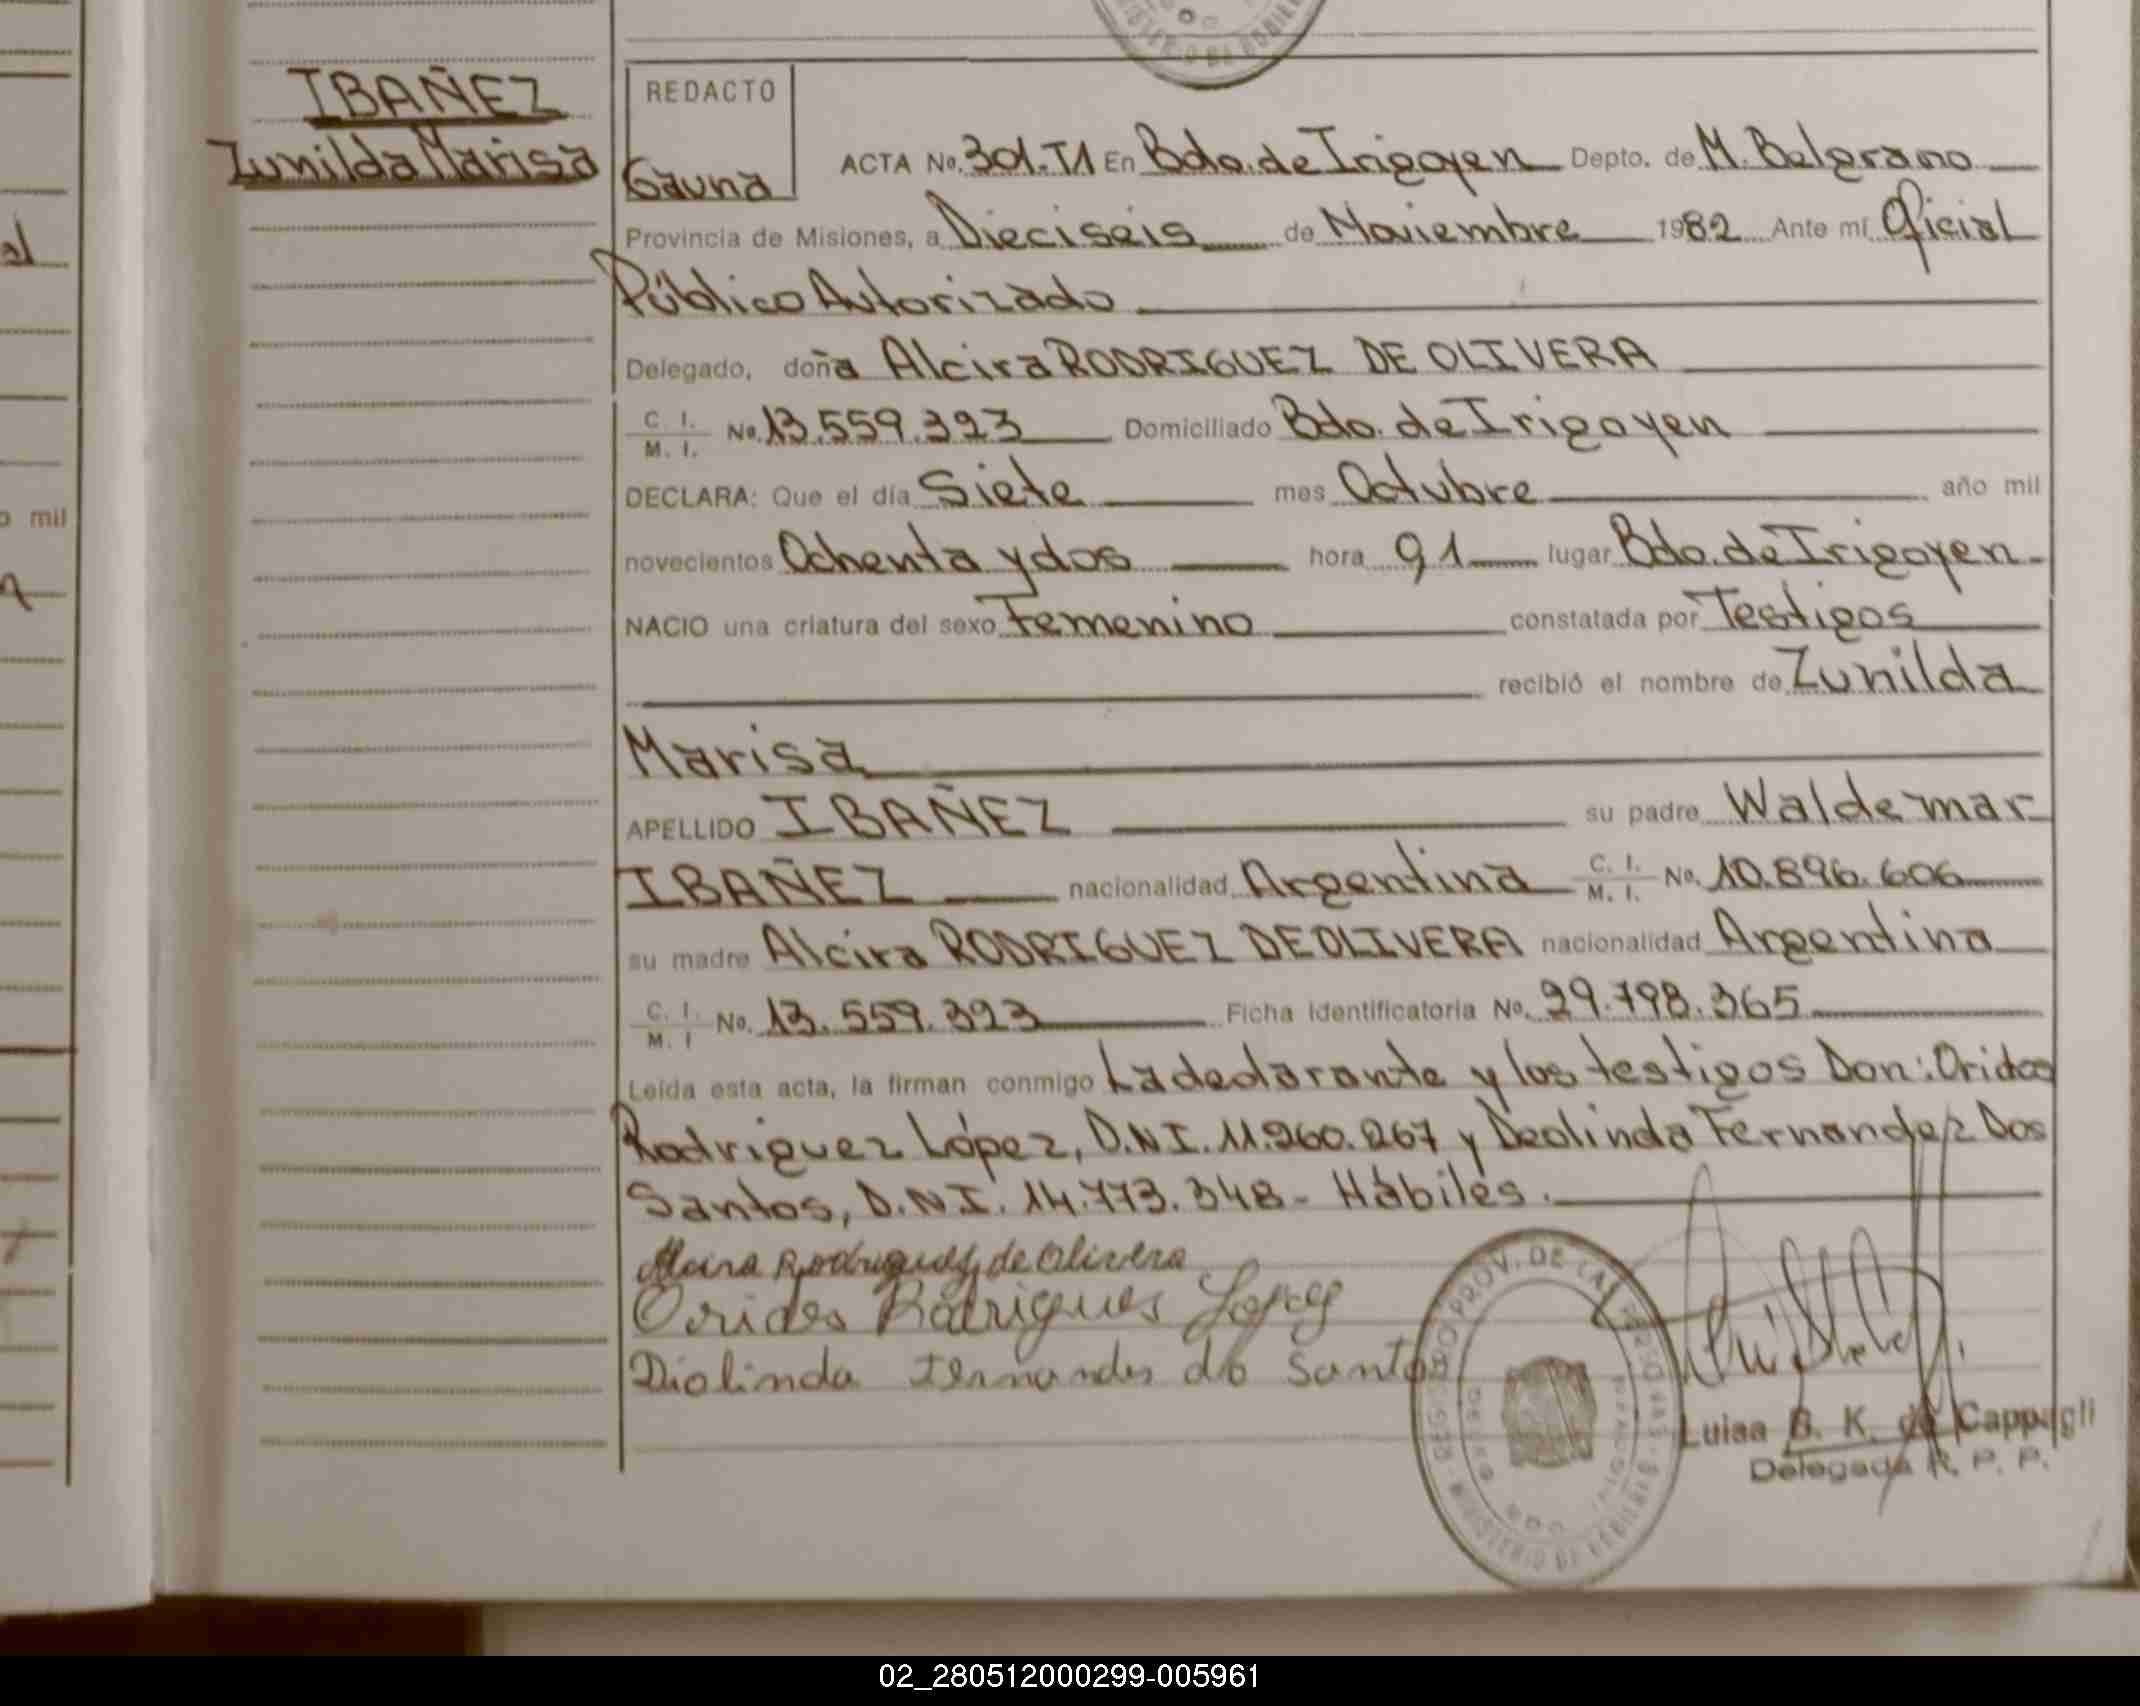 IBAÑEZ
Zunilda Marisa
REDACTO
Gauna
ACTA No. 301.T1 En Bdo. de Irigoyen Depto. de M. Belgrano
Provincia de Misiones, a Dieciseis de Noviembre 1982 Ante mí Oficial
Público Autorizado
Delegado, doña Alcira RODRIGUEZ DE OLIVERA
C. I. M. I. No. 13.559.323 Domiciliado Bdo. de Irigoyen
DECLARA: Que el día Siete mes Octubre año mil
novecientos Ochenta y dos hora 91 lugar Bdo. de Irigoyen
NACIO una criatura del sexo Femenino constatada por Testigos
recibió el nombre de Zunilda
Marisa
APELLIDO IBAÑEZ su padre Waldemar
IBAÑEZ nacionalidad Argentina C. I. M. I. No. 10.896.606
su madre Alcira RODRIGUEZ DE OLIVERA nacionalidad Argentina
C. I. M. I No. 13.559.323 Ficha identificatoria No. 29.798.365
Leída esta acta, la firman conmigo La declarante y los testigos Don: Orides
Rodriguez López, D.N.I. 11.260.267 y Deolinda Fernandez Dos
Santos, D.N.I. 14.773.348 - Hábiles.
Alcira Rodriguez de Olivera
Orides Rodrigues Lopez
Diolinda Fernandes do Santos
PROV. DE LAS PERSONAS
MINISTERIO DE GOBIERNO
Luisa B. K. de Cappagli
Delegada R. P. P.
o mil
al
02_280512000299-005961